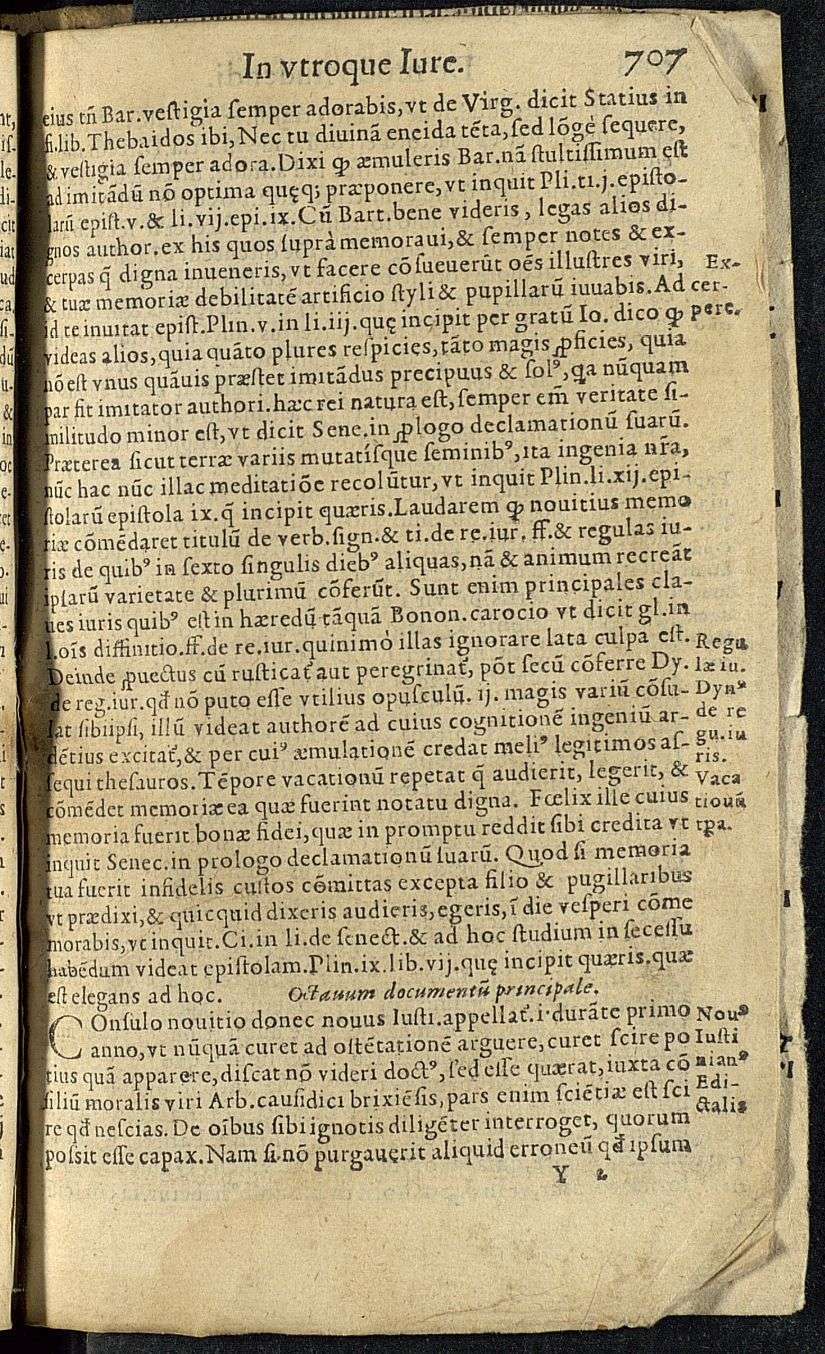 In vtroque Iure. 707
eius tñ Bar.vestigia semper adorabis,vt de Virg. dicit Statius in
fi.lib.Thebaidos ibi,Nec tu diuinã eneida tẽta,sed lõge sequere,
& vestigia semper adora.Dixi ꝙ æmuleris Bar.nã stultissimum est
ad imitãdũ nõ optima quęq; præponere,vt inquit Pli.ti.j.episto-
larũ epist.v.& li.vij.epi.ix.Cũ Bart.bene videris, legas alios di-
gnos author.ex his quos suprà memoraui,& semper notes & ex-
cerpas q̃ digna inueneris,vt facere cõsueuerũt oẽs illustres viri,
& tuæ memoriæ debilitatẽ artificio styli & pupillarũ iuuabis.Ad
id te inuitat epist.Plin.v.in li.iij.quę incipit per gratũ Io. dico ꝙ
videas alios,quia quãto plures respicies,tãto magis ꝓficies, quia
nõ est vnus quãuis præstet imitãdus precipuus & solꝰ,qa nũquam
par fit imitator authori.hæc rei natura est,semper em̃ veritate si-
militudo minor est,vt dicit Sene.in ꝓlogo declamationũ suarũ.
Præterea sicut terræ variis mutatísque seminibꝰ,ita ingenia nr̃a,
nũc hac nũc illac meditatiõe recolũtur,vt inquit Plin.li.xij.epi-
stolarũ epistola ix.q̃ incipit quæris.Laudarem ꝙ nouitius memo
riæ cõmẽdaret titulũ de verb.sign.& ti.de re.iur. ff.& regulas iu-
ris de quibꝰ in sexto singulis diebꝰ aliquas,nã & animum recreãt
ipsarũ varietate & plurimũ cõferũt. Sunt enim principales cla-
ues iuris quibꝰ est in hæredũ tãquã Bonon.carocio vt dicit gl.in
l.oĩs diffinitio.ff.de re.iur.quinimò illas ignorare lata culpa est.
Deinde ꝓuectus cũ rusticat᷑ aut peregrinat᷑, põt secũ cõferre Dy.
de reg.iur.qđ nõ puto esse vtilius opusculũ. ij. magis variũ cõsu-
lat sibiipsi, illũ videat authorẽ ad cuius cognitionẽ ingeniũ ar-
dẽtius excitat᷑,& per cuiꝰ æmulationẽ credat meliꝰ legitimos as-
sequi thesauros.Tẽpore vacationũ repetat q̃ audierit, legerit, &
cõmẽdet memoriæ ea quæ fuerint notatu digna. Fœlix ille cuius
memoria fuerit bonæ fidei,quæ in promptu reddit sibi credita vt
inquit Senec.in prologo declamationũ suarũ. Quod si memoria
tua fuerit infidelis custos cõmittas excepta filio & pugillaribus
vt prædixi,& quicquid dixeris audieris,egeris,ĩ die vesperi cõme
morabis,vt inquit.Ci.in li.de senect.& ad hoc studium in secessu
habẽdum videat epistolam.Plin.ix.lib.vij.quę incipit quæris.quæ
est elegans ad hoc. Octauum documentũ principale.
COnsulo nouitio donec nouus Iusti.appellat᷑.i.durãte primo
anno,vt nũquã curet ad ostẽtationẽ arguere,curet scire po
tius quã apparere,discat nõ videri doctꝰ,sed esse quærat,iuxta cõ
siliũ moralis viri Arb.causidici brixiẽsis,pars enim sciẽtiæ est sci
re qđ nescias.De oĩbus sibi ignotis diligẽter interroget, quorum
possit esse capax.Nam si nõ purgauerit aliquid erroneũ qđ ipsum
Y 2
Ex-
cer-
pere.
Regu
læ iu.
Dynꝰ
de re
gu.iu
ris.
Vaca
tionũ
tꝑa.
Nouꝰ
Iusti
nianꝰ
Edi-
ctalis